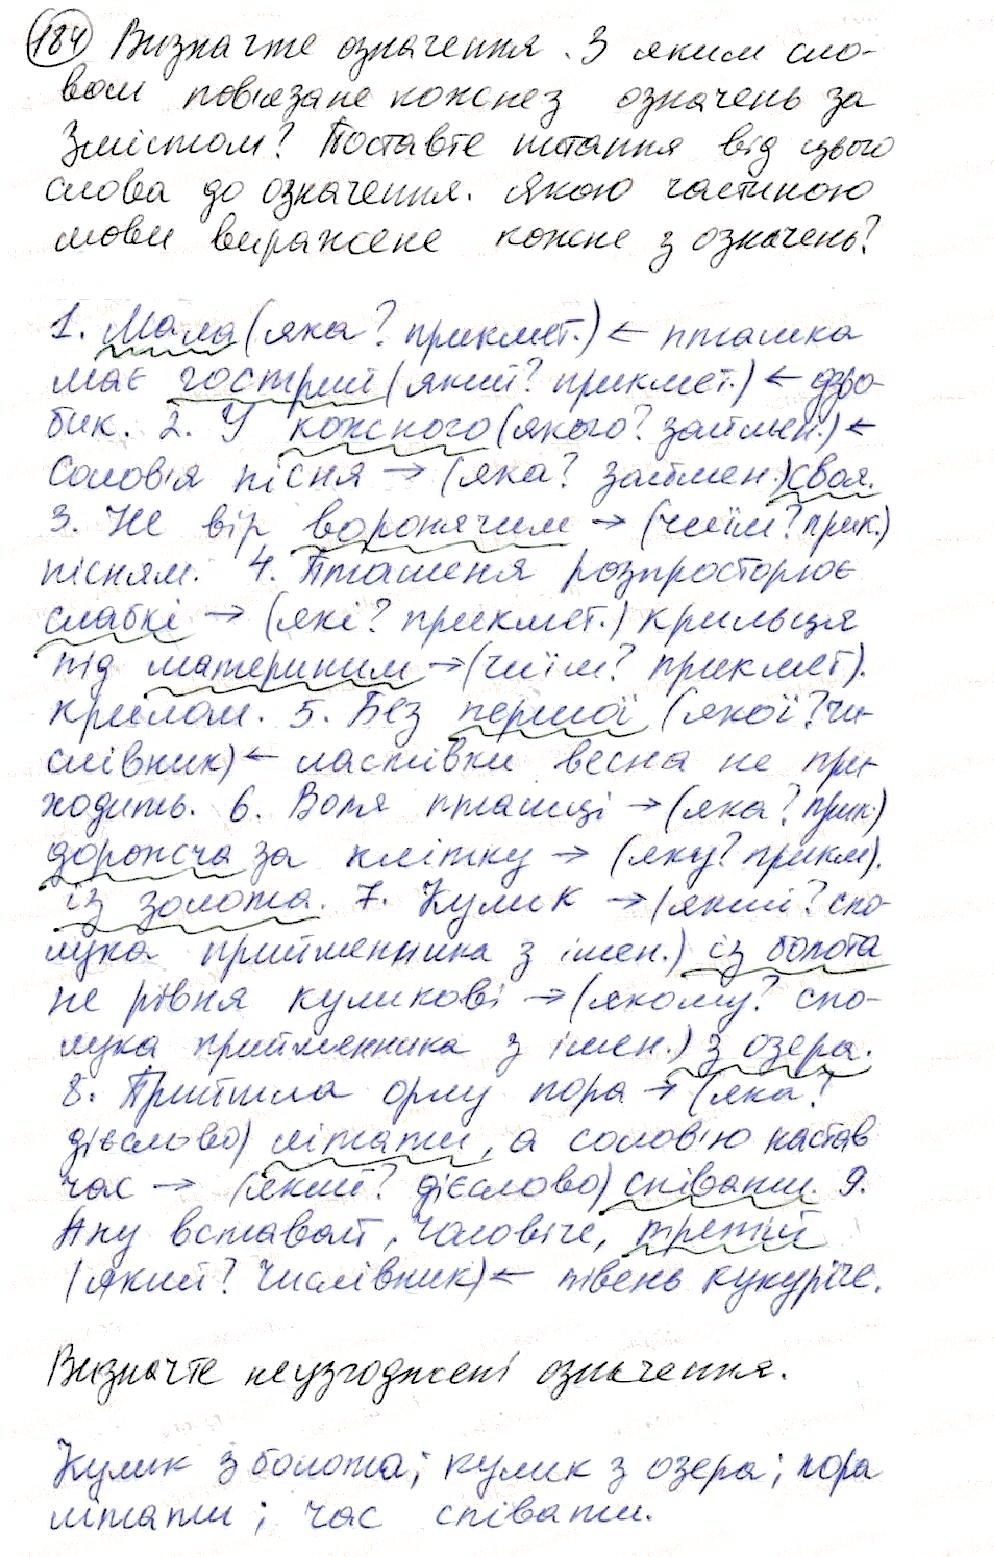 184 Визначте означення. З яким сло-
вом пов'язане кожне з означень за
змістом? Поставте питання від цього
слова до означення. Якою частиною
мови виражене кожне з означень?
1. Мала (яка? прикмет.) ← пташка
має гострий (який? прикмет.) ← дзьо-
бик. 2. У кожного (якого? займен.) ←
солов'я пісня → (яка? займен.) своя.
3. Не вір воронячим → (чиїм? прик.)
пісням. 4. Пташеня розпросторює
слабкі → (які? прикмет.) крильця
під материним → (чиїм? прикмет).
крилом. 5. Без першої (якої? чи-
слівник) ← ластівки весна не при-
ходить. 6. Воля пташці → (яка? прик.)
дорожча за клітку → (яку? прикм).
із золота. 7. Кулик → (який? спо-
лука прийменника з імен.) із болота
не рівня куликові → (якому? спо-
лука прийменника з імен.) з озера.
8. Прийшла орлу пора → (яка?
дієслово) літати, а солов'ю настав
час → (який? дієслово) співати. 9.
Ану вставай, чоловіче, третій
(який? числівник) ← півень кукуріче.
Визначте неузгоджені означення.
Кулик з болота; кулик з озера; пора
літати; час співати.